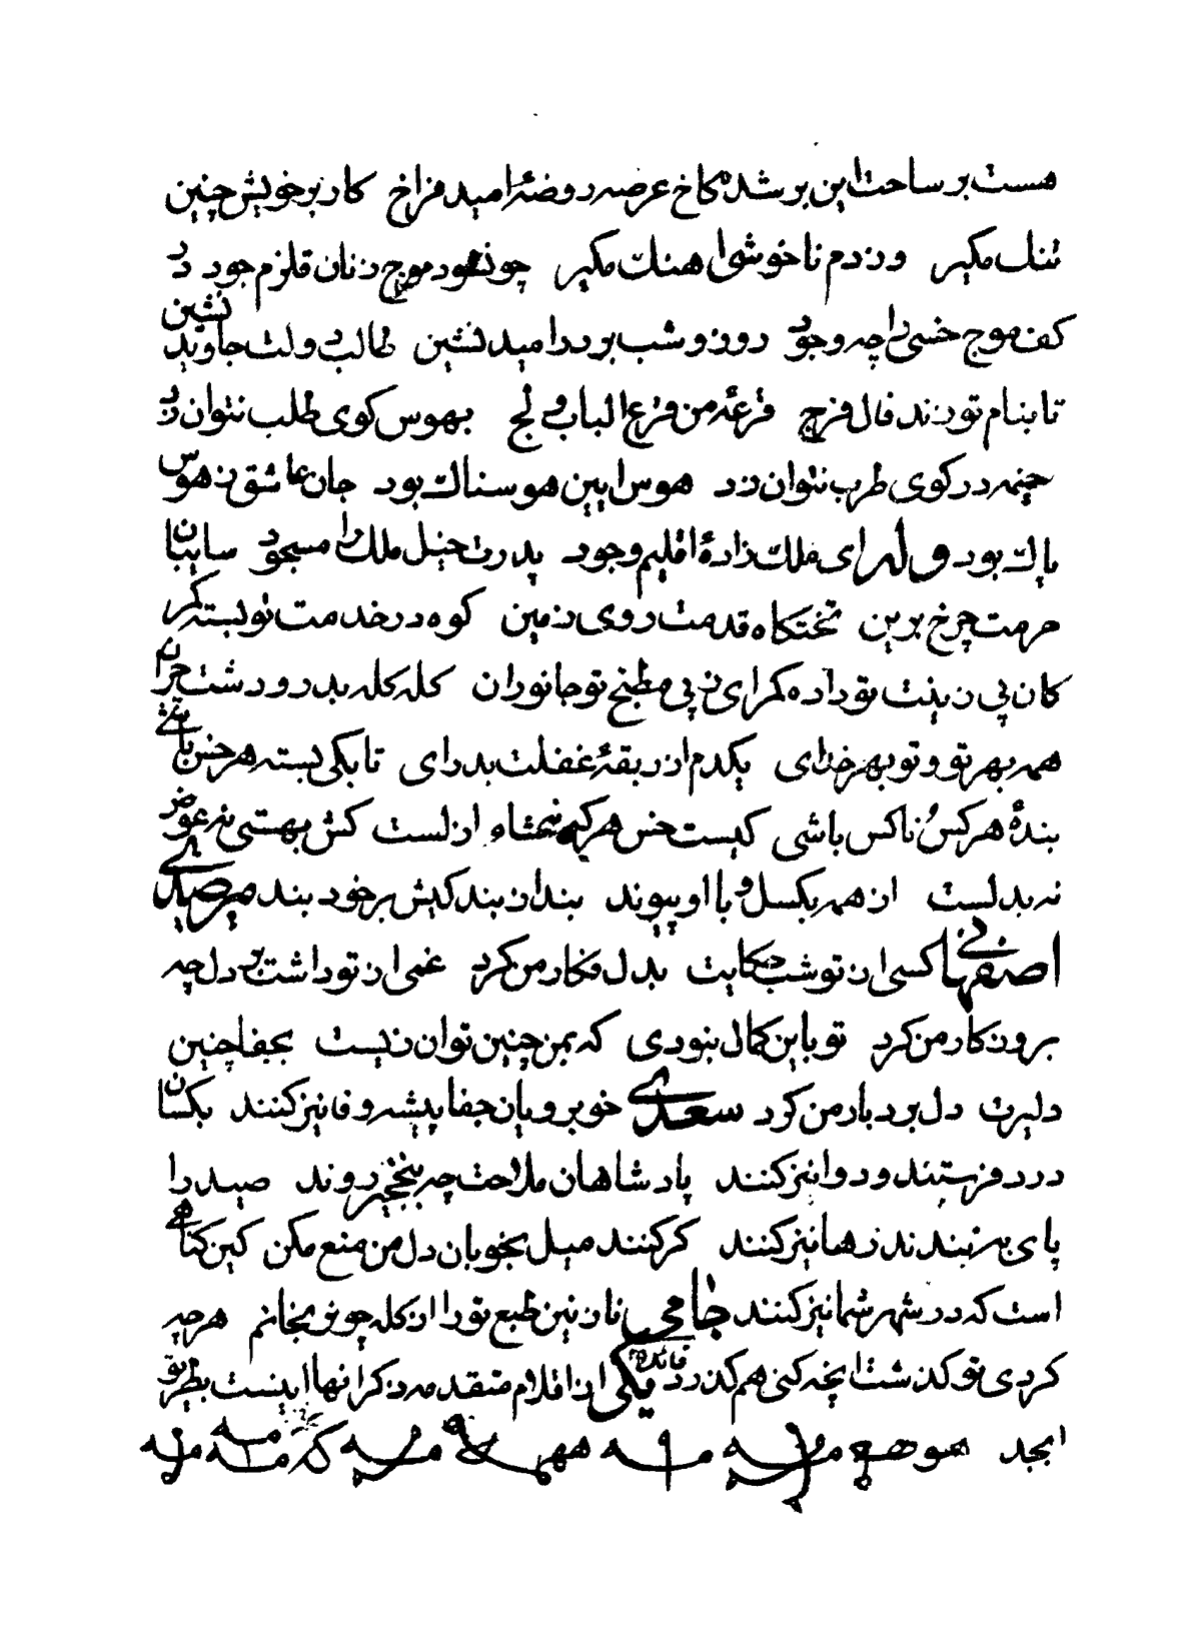 هست بر ساحت این بر شده کاخ عرصه روضهٔ امید فراخ کار بر خویش چنین
تنک مکیر وز دم ناخوشی اهنک مکیر چون شود موج زنان قلزم جود در
کف موج خسی را چه وجود روز و شب بر در امید نشین طالب دولت جاوید نشین
تا بنام تو زند فال فرج قرعهٔ من قرع الباب ولج بهوس کوی طلب نتوان زد
خیمه در کوی طرب نتوان زد هوس ایین هوسناک بود جان عاشق ز هوس
پاک بود وله ای ملک زادهٔ اقلیم وجود پدرت خیل ملک را مسجود سایبان
حرمت چرخ برین تختکاه قدمت روی زمین کوه در خدمت تو بسته کمر
کان پی زینت تو داده کمر ای ز پی مطبخ تو جانوران کله کله بدر و دشت چران
همه بهر تو و تو بهر خدای یکدم از ربقهٔ غفلت بدر ای تا بکی بسته هر خس باشی
بندهٔ هر کس و ناکس باشی کیست خس هر که نه از لست کش بهستی نه عوض
نه بدلست از همه بکسل و با او پیوند بند از بند کیش بر خود بند
اصفهانی کسی از تو شب حکایت بدل فکار من کرد غمی از تو داشت بر دل چه
برون کار من کرد تو باین کمال نبودی که بمن چنین توان زیست بجفا چنین
دلیرت دل بردبار من کرد سعدی خوبرویان جفا پیشه وفا نیز کنند بکسان
درد فرستند و دوا نیز کنند پادشاهان ملاحت چو بنخچیر روند صید را
پای ببندند و رها نیز کنند کر کنند میل بخوبان دل من منع مکن کین کناهی
است که در شهر شما نیز کنند جامی نازنین طبع تو را از کله چون رنجانم هر چه
کردی تو کذشت انچه کنی هم کذرد فائده یکی از اقلام متقدمه ذکر انها اینست بطریق
ابجد